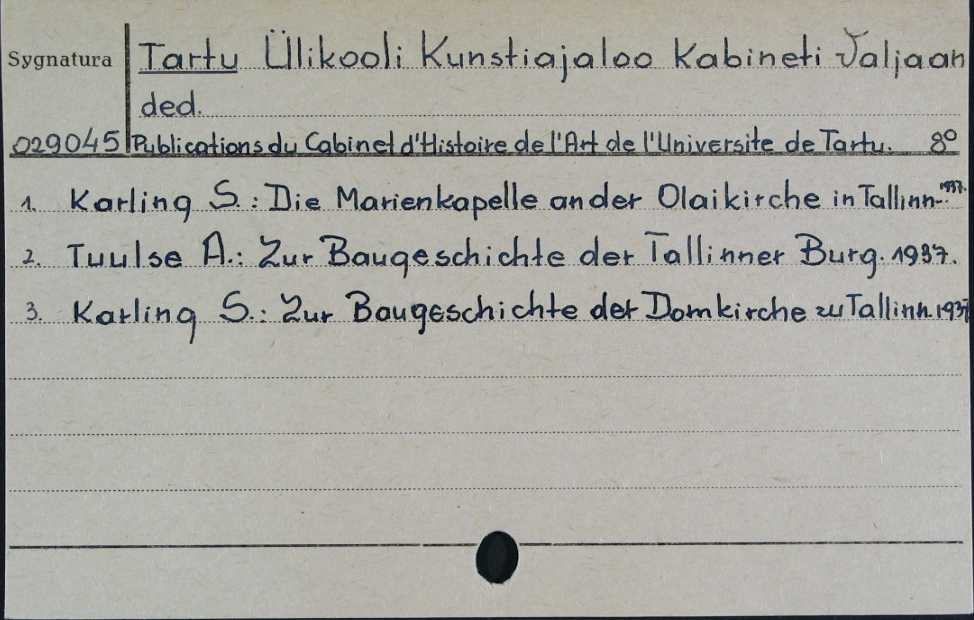 Sygnatura Tartu Ülikooli Kunstiajaloo Kabineti Valjaan
ded.
029045 Publications du Cabinet d'Histoire de l'Art de l'Universite de Tartu. 8°
1. Karling S.: Die Marienkapelle an der Olaikirche in Tallinn. 1937.
2. Tuulse A.: Zur Baugeschichte der Tallinner Burg. 1937.
3. Karling S.: Zur Baugeschichte der Domkirche zu Tallinn. 1937